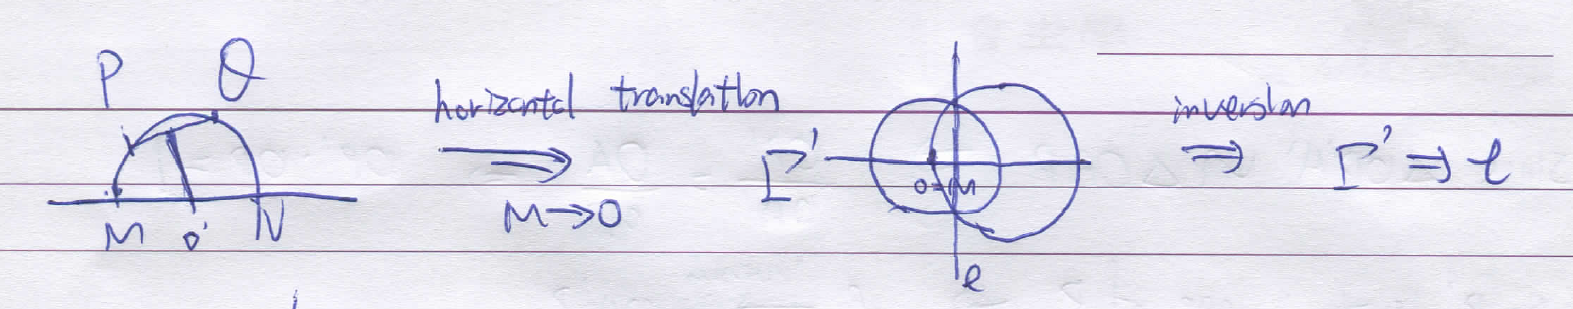 P Q
horizontal translation
M→O
M O' N
Γ'
O=M
l
inversion
⇒ Γ' ⇒ l